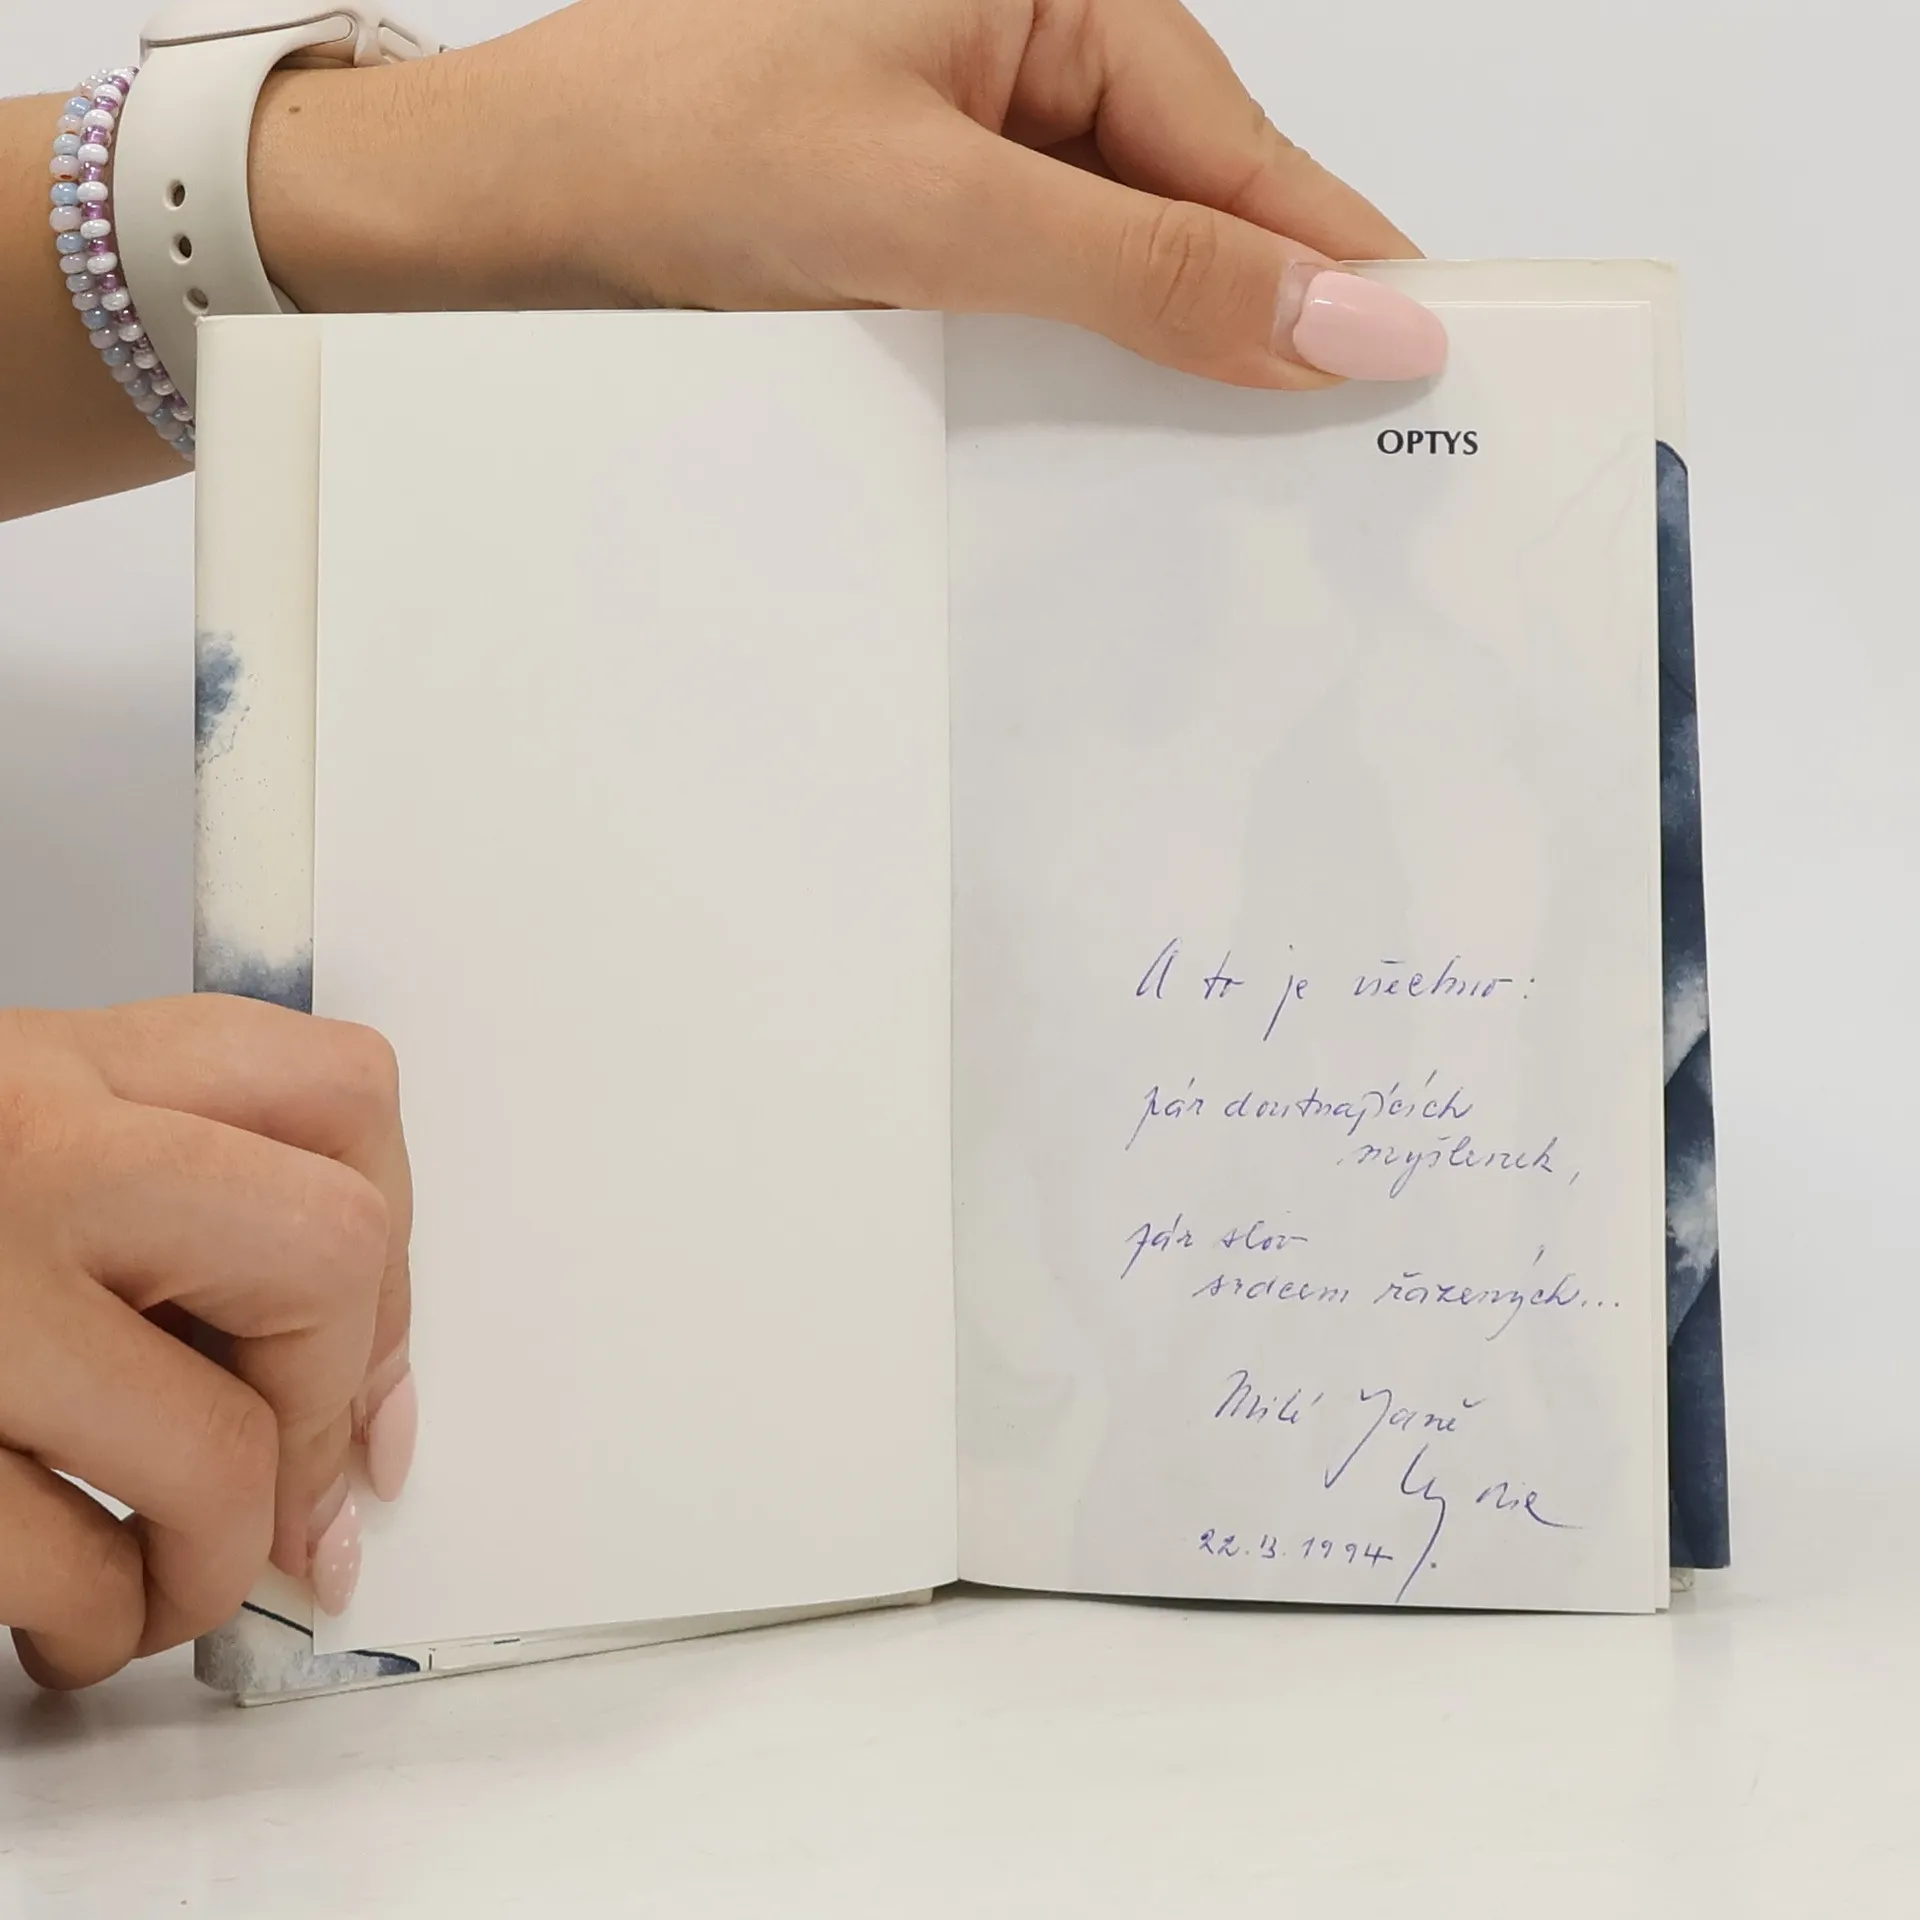 OPTYS
A to je všechno:
pár doutnajících
myšlenek,
pár slov
srdcem řazených...
Milé Janě
22. 3. 1994